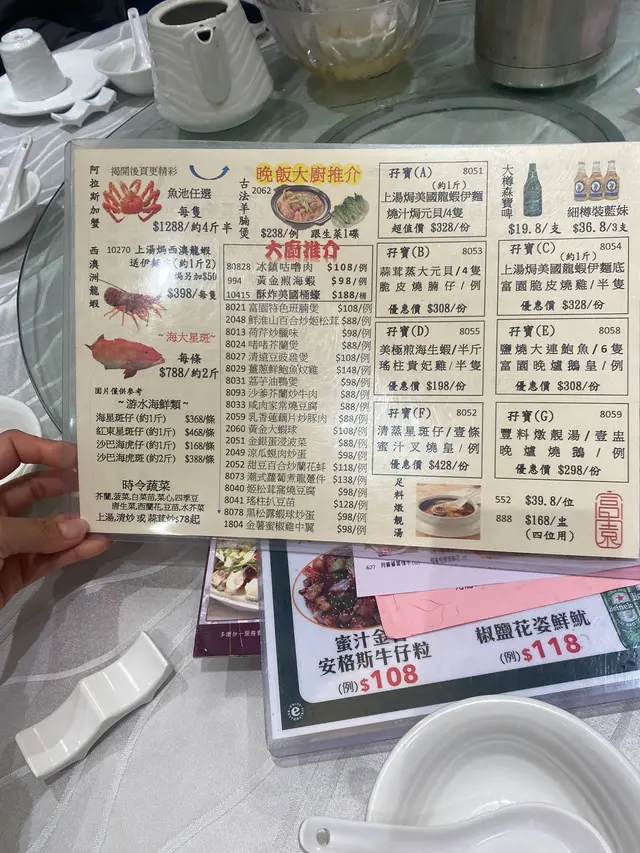 阿拉斯加蟹
揭開後頁更精彩
魚池任選
每隻
$1288/約4斤半
西澳洲龍蝦
10270 上湯焗西澳龍蝦
$398/每隻
~海大星斑~
每條
$788/約2斤
圖片僅供參考
~游水海鮮類~
海星斑仔(約1斤) $368/條
紅東星斑仔(約1斤) $468/條
沙巴海虎仔(約1斤) $168/條
沙巴海虎斑(約2斤) $388/條
時令蔬菜
芥蘭,菠菜,白菜苗,菜心,四季豆
唐生菜,西蘭花,豆苗,水芥菜
上湯,清炒 或 蒜茸炒$78起
晚飯大廚推介
古法羊腩煲
2062
$238/例 跟生菜1碟
大廚推介
80828 冰鎮咕嚕肉 $108/例
994 黃金煎海蝦 $98/例
10415 酥炸美國桶蠔 $188/桶
8021 富園特色班腩煲 $108/例
2048 鮮淮山百合炒姬松茸 $88/例
8013 荷芹炒臘味 $98/例
8024 啫啫芥蘭煲 $88/例
8027 清遠豆豉雞煲 $108/例
8029 薑蔥鮮鮑魚炆雞 $148/例
8031 荔芋油鴨煲 $98/例
8093 沙爹芥蘭炒牛肉 $88/例
8033 咸肉家常燒豆腐 $88/例
2059 乳香蓮藕片炒豚肉 $88/例
2060 黃金大蝦球 $108/例
2051 金銀蛋浸波菜 $88/例
2049 涼瓜蜆肉炒蛋 $98/例
2052 甜豆百合炒蘭花蚌 $118/例
8073 潮式蘿蔔煮龍躉件 $138/例
8040 姬松茸窩燒豆腐 $98/例
8041 瑤柱扒豆苗 $128/例
8078 黑松露蝦球炒蛋 $98/例
1804 金薯蜜椒雞中翼 $98/例
孖寶(A) 8051
(約1斤)
上湯焗美國龍蝦伊麵
燒汁焗元貝/4隻
超值價 $328/份
孖寶(B) 8053
蒜茸蒸大元貝/4隻
脆皮燒腩仔/例
優惠價 $308/份
孖寶(D) 8055
美極煎海生蝦/半斤
瑤柱貴妃雞/半隻
優惠價 $198/份
孖寶(F) 8052
清蒸星斑仔/壹條
蜜汁叉燒皇/例
優惠價 $428/份
大樽森寶啤
$19.8/支
細樽裝藍妹
$36.8/3支
孖寶(C) 8054
(約1斤)
上湯焗美國龍蝦伊麵底
富園脆皮燒雞/半隻
優惠價 $328/份
孖寶(E) 8058
鹽燒大連鮑魚/6隻
富園晚燒鵝皇/例
優惠價 $308/份
孖寶(G) 8059
豐料燉靚湯/壹盅
晚爐燒鵝/例
優惠價 $298/份
足料燉靚湯
552 $39.8/位
888 $168/盅
(四位用)
富園
蜜汁
安格斯牛仔粒
(例)$108
椒鹽花姿鮮魷
(例)$118